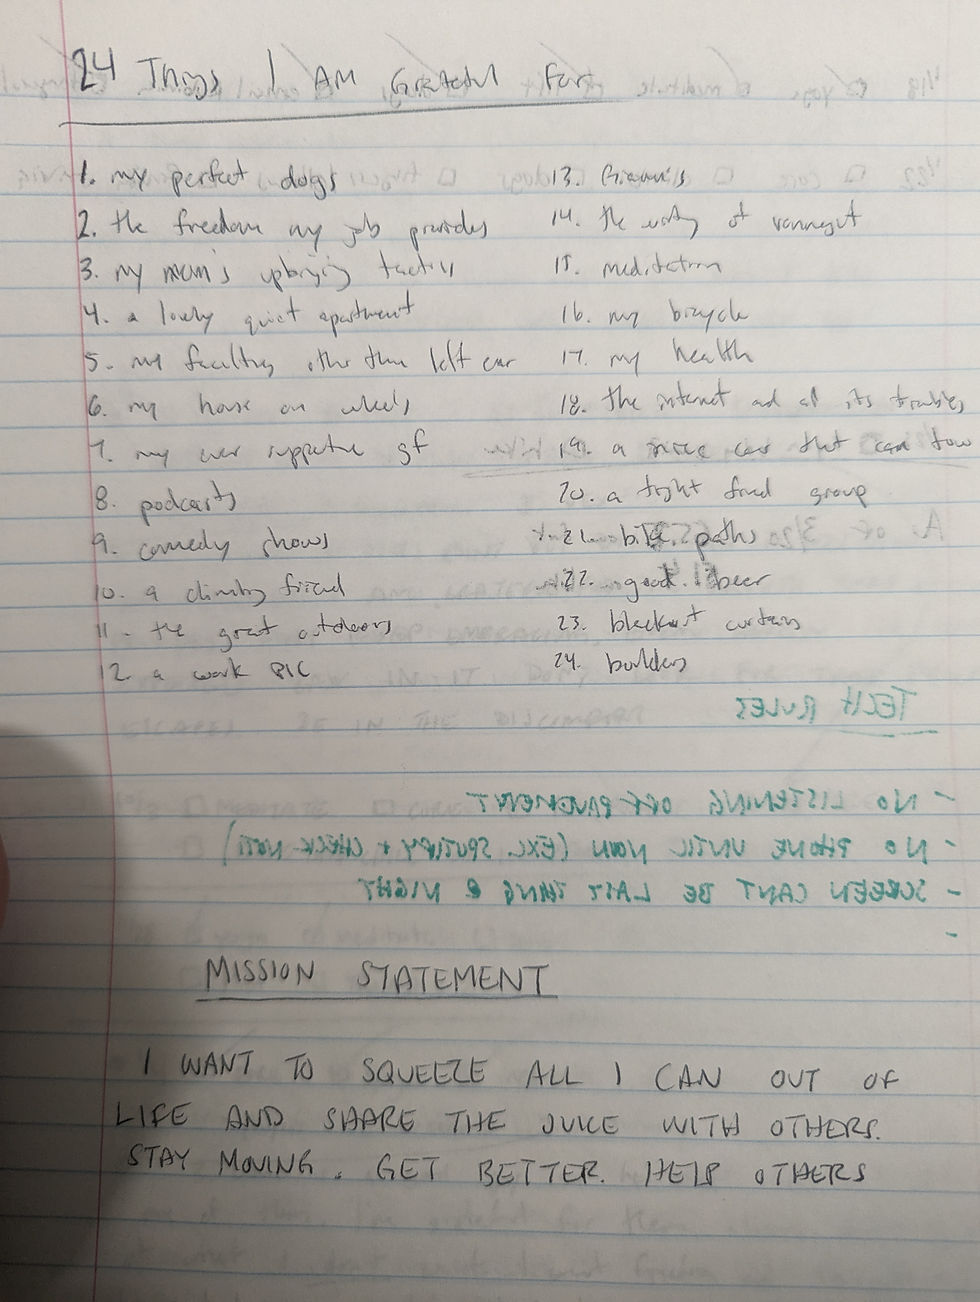 24 Things I AM Grateful For
1. my perfect dogs
2. the freedom my job provides
3. my mom's upbringing tactics
4. a lovely quiet apartment
5. my faculties other than left ear
6. my home on wheels
7. my ever supportive gf
8. podcasts
9. comedy shows
10. a climbing friend
11. the great outdoors
12. a work PIC
13.
14. the writing of vonnegut
15. meditation
16. my bicycle
17. my health
18. the internet and all its troubles
19. a nice car that can tow
20. a tight friend group
21. bike paths
22. good beer
23. blackout curtains
24. boulders
TECH RULES
- NO LISTENING OFF PAVEMENT
- NO PHONE UNTIL NOON (EXC. SPOTIFY + CHECK NOTI)
- SCREEN CANT BE LAST THING @ NIGHT
-
MISSION STATEMENT
I WANT TO SQUEEZE ALL I CAN OUT OF
LIFE AND SHARE THE JUICE WITH OTHERS.
STAY MOVING. GET BETTER. HELP OTHERS